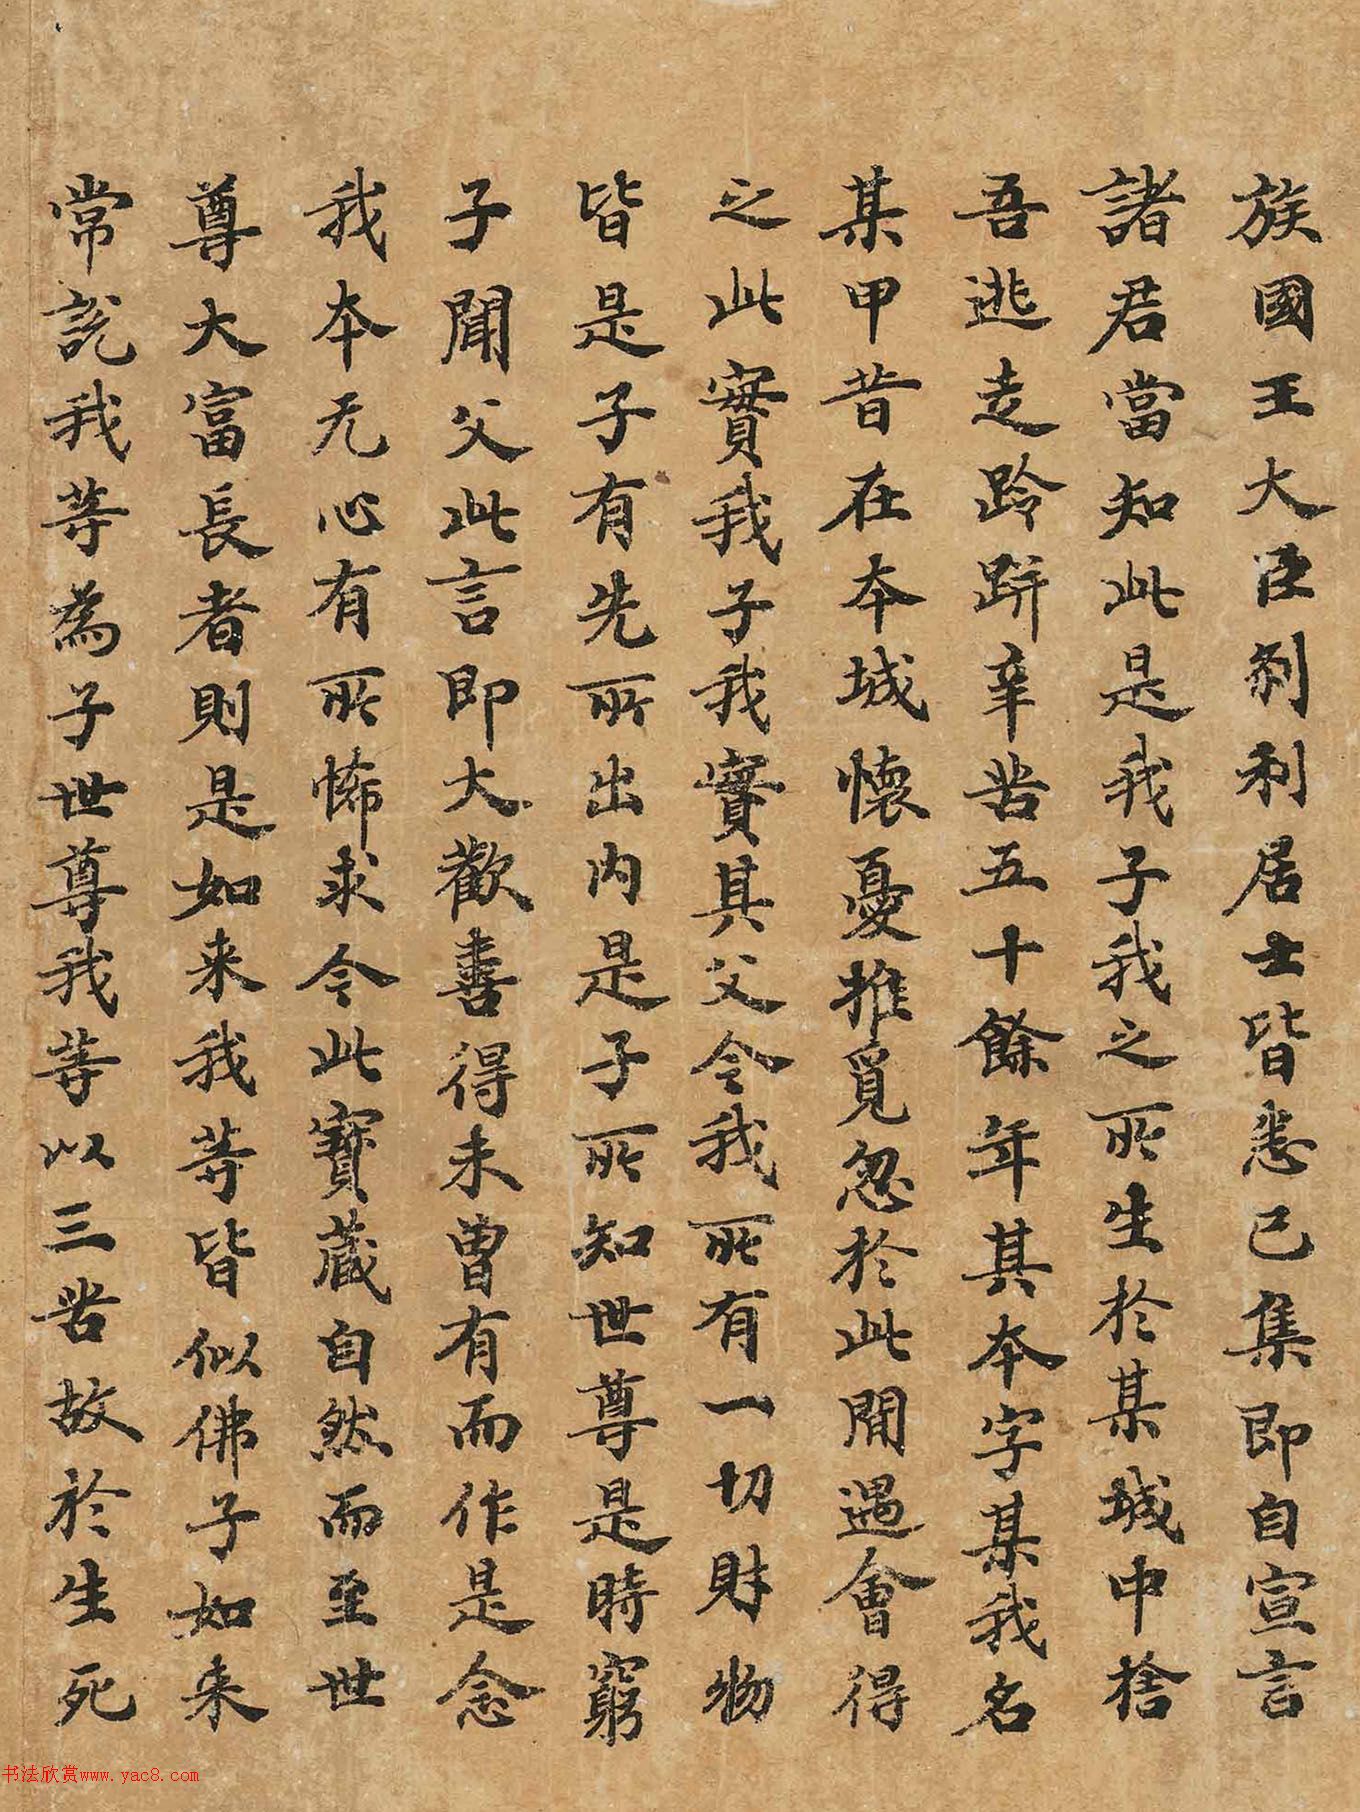 族國王大臣剎利居士皆悉已集即自宣言
諸君當知此是我子我之所生於某城中捨
吾逃走跉跰辛苦五十餘年其本字某我名
某甲昔在本城懷憂推覓忽於此間遇會得
之此實我子我實其父今我所有一切財物
皆是子有先所出內是子所知世尊是時窮
子聞父此言即大歡喜得未曾有而作是念
我本无心有所悕求今此寶藏自然而至世
尊大富長者則是如来我等皆似佛子如来
常說我等為子世尊我等以三苦故於生死
书法欣赏www.yac8.com